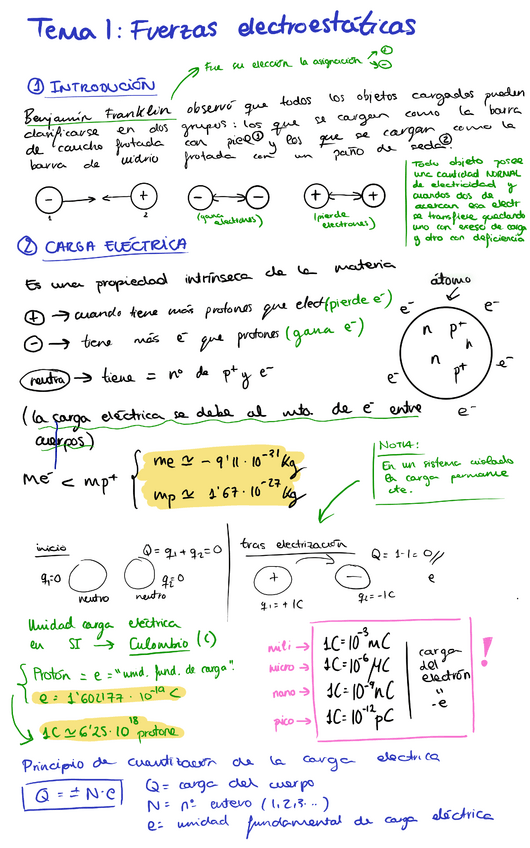 Tema 1: Fuerzas electroestáticas
Fue su elección la asignación ⊕ ⊖
① INTRODUCIÓN
Benjamin Franklin observó que todos los objetos cargados pueden
clasificarse en dos grupos: los que se cargan como la barra
de caucho frotada con piel① y los que se cargan como la
barra de vidrio frotada con un paño de seda②
Todo objeto posee
una cantidad NORMAL
de electricidad y
cuando dos de
acercan esa elect
se transfiere quedando
uno con exceso de carga
y otro con deficiencia
- + - - + +
1 2
(gana
electrones)
(pierde
electrones)
② CARGA ELÉCTRICA
Es una propiedad intrínseca de la materia
⊕ → cuando tiene más protones que elect (pierde e⁻)
⊖ → tiene más e⁻ que protones (gana e⁻)
neutra → tiene = nº de p⁺ y e⁻
(la carga eléctrica se debe al mto. de e⁻ entre
cuerpos)
átomo
e⁻ e⁻
n p⁺
n n
p⁺
e⁻ e⁻
e⁻
me⁻ < mp⁺
me ≃ - 9'11 · 10⁻³¹ kg
mp ≃ 1'67 · 10⁻²⁷ kg
NOTA:
En un sistema aislado
la carga permanece
cte.
inicio
Q = q₁ + q₂ = 0
q₁=0 q₂=0
neutro neutro
tras electrización
Q = 1-1 = 0 //
+ - e
q₁ = + 1C q₂ = -1C
Unidad carga eléctrica
en SI → Culombio (C)
Protón = e = "und. fund. de carga".
e = 1'602177 · 10⁻¹⁹ C
1C ≃ 6'25 · 10¹⁸ protone
mili → 1C = 10⁻³ mC
micro → 1C = 10⁻⁶ μC
nano → 1C = 10⁻⁹ nC
pico → 1C = 10⁻¹² pC
carga
del
electrón
"
-e
!
Principio de cuantización de la carga electrica
Q = ± N·e
Q = carga del cuerpo
N = nº entero (1,2,3...)
e = unidad fundamental de carga eléctrica